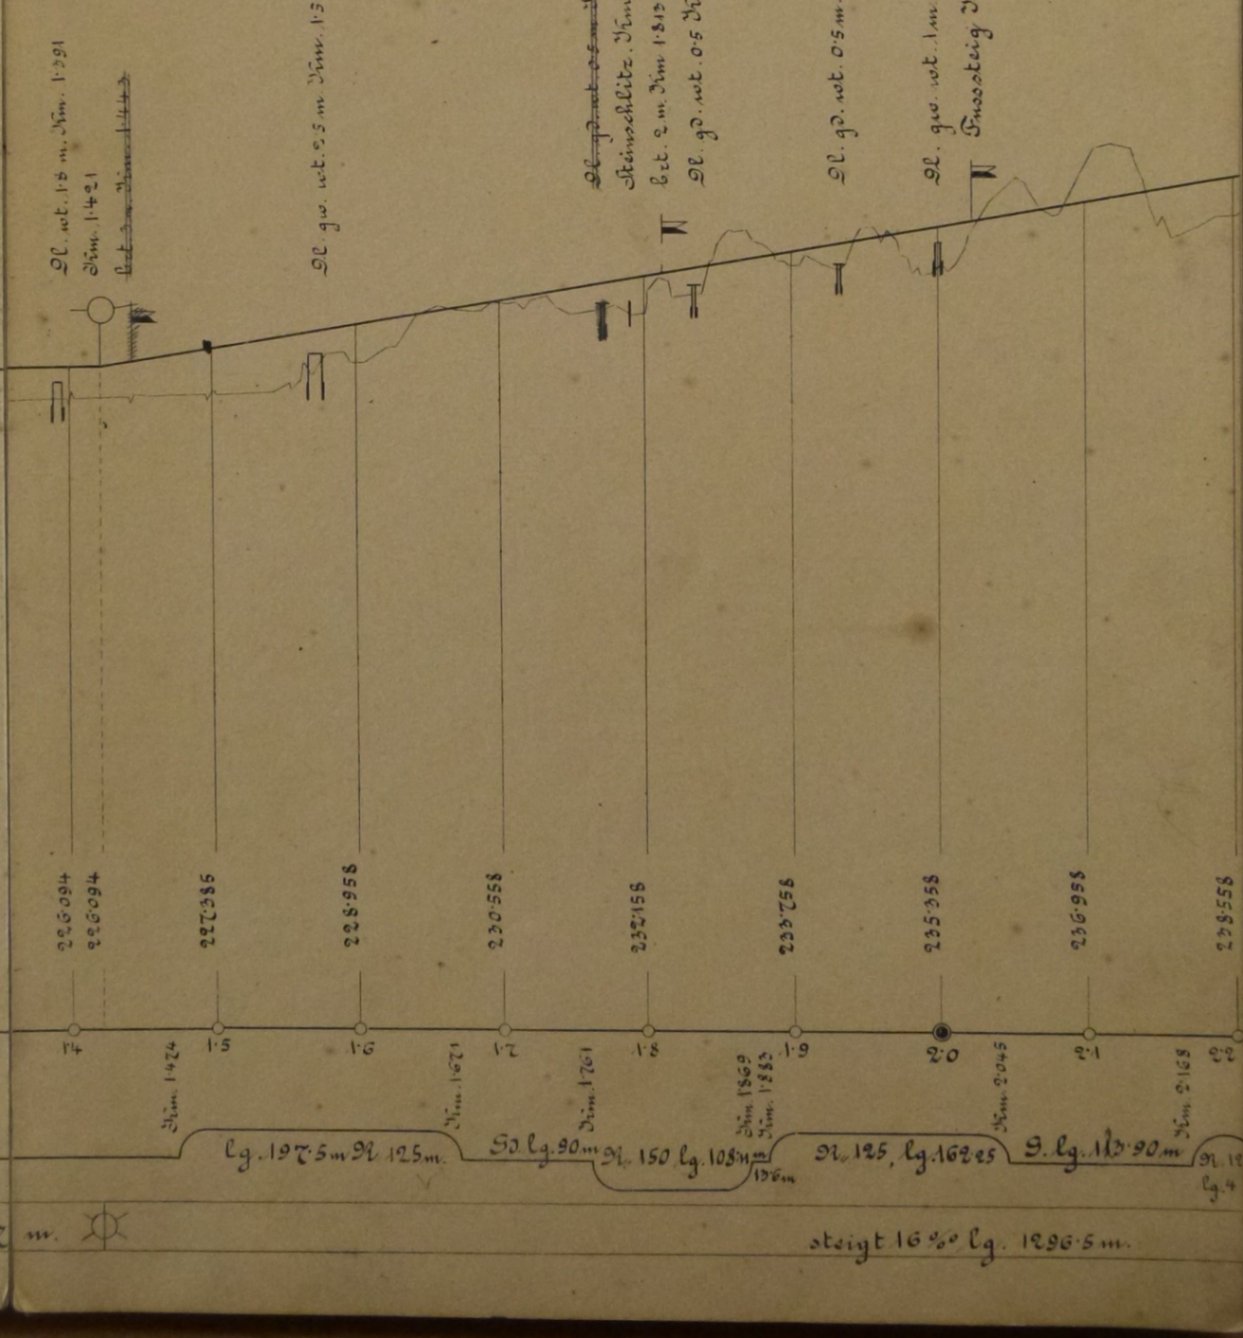 Dl. wt. 1·8 m. Km. 1·391
Km. 1·421
brt 3 m Km. 1·443
Dl. gw. wt. 2·5 m Km. 1·5
Dl. gd. wt. 0·5 m
Steinschlitz. Km
brt. 2 m. Km 1·813
Dl. gd. wt. 0·5 K
Dl. gd. wt. 0·5 m.
Dl. gw. wt. 1 m
Fusssteig K
226·094
226·094
227·385
228·958
230·558
232·158
233·758
235·358
236·958
238·558
1·4
1·5
1·6
1·7
1·8
1·9
2·0
2·1
2·2
Km. 1·474
Km. 1·671
Km. 1·761
Km. 1·869
Km. 1·883
Km. 2·045
Km. 2·168
lg. 197·5 m R 125 m.
lg. 90 m
R. 150 lg. 108·
13·6 m
R. 125, lg. 162·25
G. lg. 113·90 m
R. 12
lg. 4
m.
steigt 16 ‰ lg. 1296·5 m.